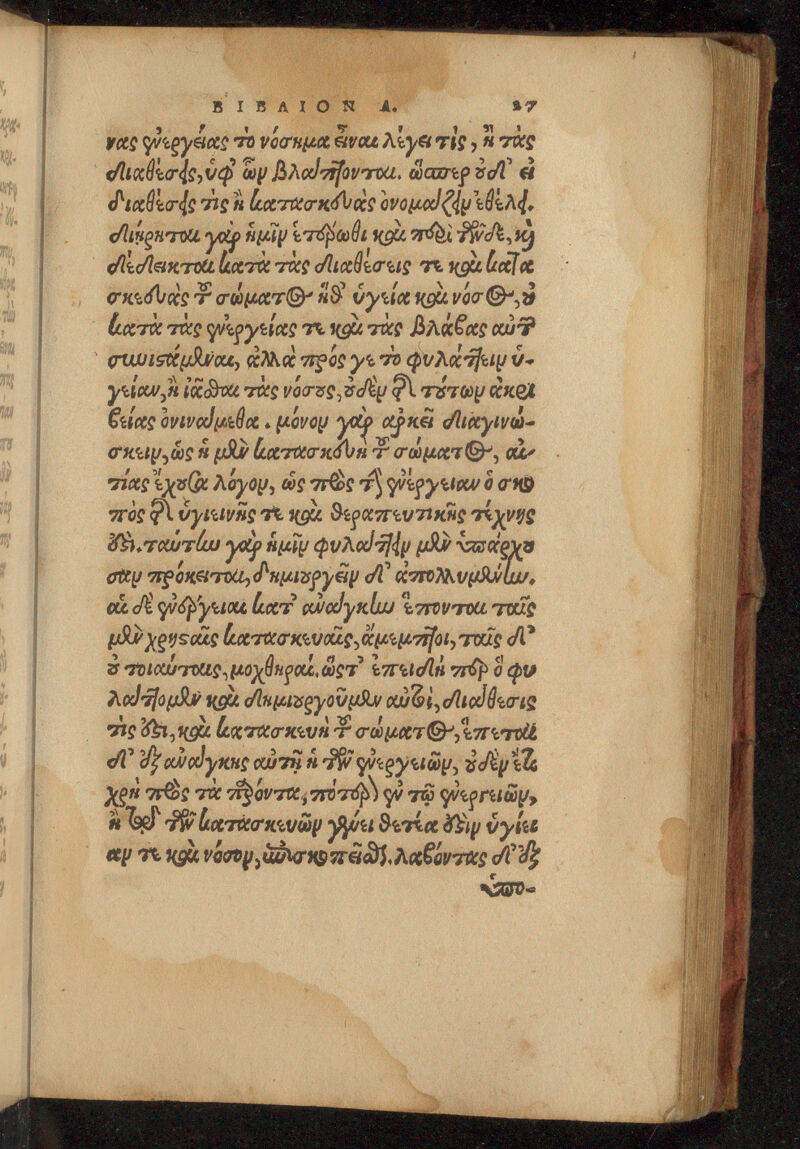 ΒΙΒΛΙΟΝ Α. 27
νας ἐνεργείας τὸ νόσημα εἶναι λέγει τὶς, ἢ τὰς
διαθέσεις, ὑφ' ὧν βλάπτονται. ὥσπερ οὐδ' εἰ
διαθέσεις τις ἢ κατασκευὰς ὀνομάζειν ἐθέλει.
διῄρηται γὰρ ἡμῖν ἑτέρωθι καὶ περὶ τῶνδε, καὶ
δέδεικται κατὰ τὰς διαθέσεις τε καὶ κατα
σκευὰς τοῦ σώματος ἥθ' ὑγεία καὶ νόσος, οὐ
κατὰ τὰς ἐνεργείας τε καὶ τὰς βλάβας αὐτῶν
συνιστάμεναι, ἀλλὰ πρός γε τὸ φυλάττειν ὑ-
γείαν, ἢ ἰᾶσθαι τὰς νόσους, οὐδὲν ἐκ τούτων ἀκρι
βείας ὀνινάμεθα. μόνον γὰρ ἀρκεῖ διαγινώ-
σκειν, ὡς ἡ μὲν κατασκευὴ τοῦ σώματος, αἰ-
τίας ἔχουσα λόγον, ὡς πρὸς τὴν ἐνέργειαν ὁ σκο
πὸς τῆς ὑγιεινῆς τε καὶ θεραπευτικῆς τέχνης
ἐστι. ταύτην γὰρ ἡμῖν φυλάττειν μὲν ὑπάρχου
σαν πρόκειται, δημιουργεῖν δ' ἀπολλυμένην.
αἱ δὲ ἐνέργειαι κατ' ἀνάγκην ἕπονται ταῖς
μὲν χρησταῖς κατασκευαῖς, ἄμεμπτοι, ταῖς δ'
οὐ τοιαύταις, μοχθηραί. ὥστ' ἐπειδὴ περ ὃ φυ
λάττομεν καὶ δημιουργοῦμεν αὐτοὶ, διάθεσις
τίς ἐστι, καὶ κατασκευὴ τοῦ σώματος, ἕπεται
δ' ἐξ ἀνάγκης αὐτῇ ἡ τῶν ἐνεργειῶν, οὐδὲν ἔτι
χρὴ πρὸς τὰ παρόντα, πότερον ἐν τῷ ἐνεργειῶν,
ἢ τῶν κατασκευῶν γένει θετέα ἐστὶν ὑγίει
αν τε καὶ νόσον, ἐπισκοπεῖσθαι. λαβόντας δ' ἐξ
ὑπο-